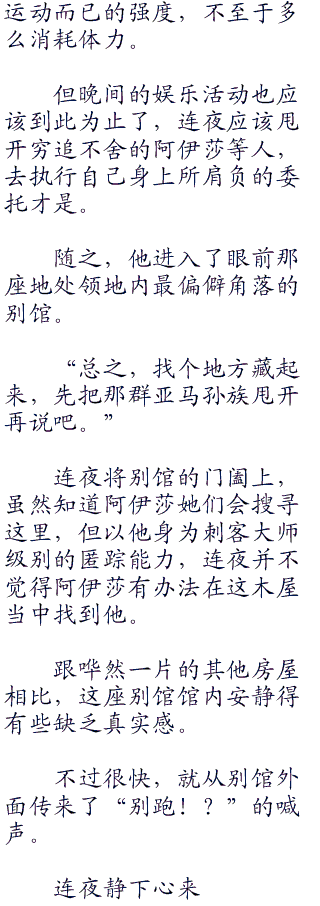 运动而已的强度，不至于多
么消耗体力。
但晚间的娱乐活动也应
该到此为止了，连夜应该甩
开穷追不舍的阿伊莎等人，
去执行自己身上所肩负的委
托才是。
随之，他进入了眼前那
座地处领地内最偏僻角落的
别馆。
“总之，找个地方藏起
来，先把那群亚马孙族甩开
再说吧。”
连夜将别馆的门阖上，
虽然知道阿伊莎她们会搜寻
这里，但以他身为刺客大师
级别的匿踪能力，连夜并不
觉得阿伊莎有办法在这木屋
当中找到他。
跟哗然一片的其他房屋
相比，这座别馆馆内安静得
有些缺乏真实感。
不过很快，就从别馆外
面传来了“别跑！？”的喊
声。
连夜静下心来